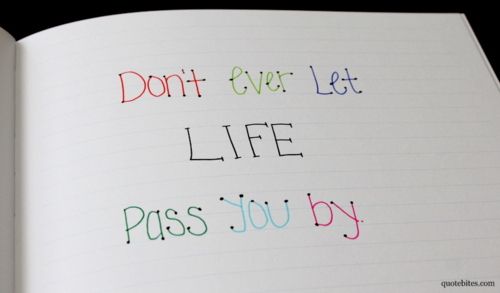 Don't ever Let
LIFE
Pass you by.
quotebites.com